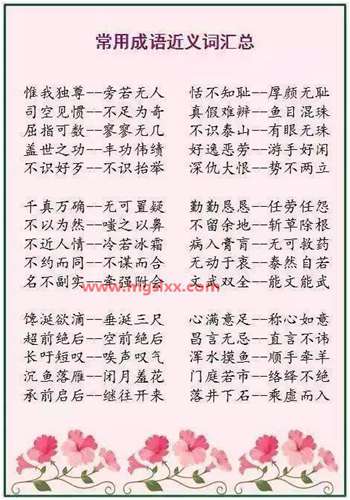 常用成语近义词汇总
惟我独尊--旁若无人 恬不知耻--厚颜无耻
司空见惯--不足为奇 真假难辨--鱼目混珠
屈指可数--寥寥无几 不识泰山--有眼无珠
盖世之功--丰功伟绩 好逸恶劳--游手好闲
不识好歹--不识抬举 深仇大恨--势不两立
千真万确--无可置疑 勤勤恳恳--任劳任怨
不以为然--嗤之以鼻 不留余地--斩草除根
不近人情--冷若冰霜 病入膏肓--无可救药
不约而同--不谋而合 无动于衷--泰然自若
名不副实--牵强附会 文武双全--能文能武
www.mgsixx.com
馋涎欲滴--垂涎三尺 心满意足--称心如意
超前绝后--空前绝后 昌言无忌--直言不讳
长吁短叹--唉声叹气 浑水摸鱼--顺手牵羊
沉鱼落雁--闭月羞花 门庭若市--络绎不绝
承前启后--继往开来 落井下石--乘虚而入